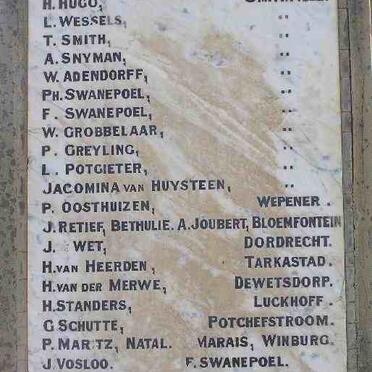 H. HUGO,
L. WESSELS, "
T. SMITH, "
A. SNYMAN, "
W. ADENDORFF, "
PH. SWANEPOEL, "
F. SWANEPOEL, "
W. GROBBELAAR, "
P. GREYLING, "
L. POTGIETER, "
JACOMINA VAN HUYSTEEN, "
P. OOSTHUIZEN, WEPENER.
J. RETIEF, BETHULIE. A. JOUBERT, BLOEMFONTEIN
J. WET, DORDRECHT.
H. VAN HEERDEN, TARKASTAD.
H. VAN DER MERWE, DEWETSDORP.
H. STANDERS, LUCKHOFF.
G. SCHUTTE, POTCHEFSTROOM.
P. MARITZ, NATAL. MARAIS, WINBURG.
J. VOSLOO. F. SWANEPOEL.